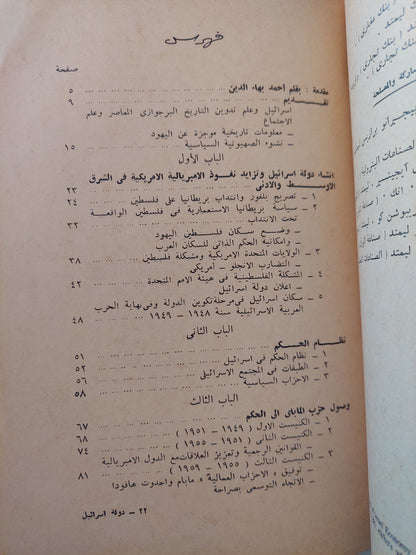 فهرس
صفحة
مقدمة : بقلم احمد بهاء الدين ... ... ... ... ... ... ٥
تقديم ... ... ... ... ... ... ... ... ٩
اسرائيل وعلم تدوين التاريخ البرجوازى المعاصر وعلم
الاجتماع
ـ معلومات تاريخية موجزة عن اليهود
ـ نشوء الصهيونية السياسية ... ... ... ... ١٥
الباب الأول
انشاء دولة اسرائيل وتزايد نفوذ الامبريالية الامريكية فى الشرق
الاوسط والادنى ... ... ... ... ... ... ٢٣
١ ـ تصريح بلفور وانتداب بريطانيا على فلسطين ... ٢٤
٢ ـ سياسة بريطانيا الاستعمارية فى فلسطين الواقعة
تحت الانتداب ... ... ... ... ...
ـ وضع سكان فلسطين اليهود
ـ وامكانية الحكم الذاتى للسكان العرب
٣ ـ الولايات المتحدة الامريكية ومشكلة فلسطين ... ٣٨
ـ التضارب الانجلو ـ أمريكى
٤ ـ المشكلة الفلسطينية فى هيئة الامم المتحدة ... ٤٢
ـ اعلان دولة اسرائيل
٥ ـ سكان اسرائيل فى مرحلة تكوين الدولة وفى نهاية الحرب
العربية الاسرائيلية سنة ١٩٤٨ ـ ١٩٤٩ ... ٤٨
الباب الثانى
نظام الحكم ... ... ... ... ... ... ... ٥١
١ ـ نظام الحكم فى اسرائيل ... ... ... ... ٥٢
٢ ـ الطبقات فى المجتمع الاسرائيلى ... ... ... ٥٦
٣ ـ الاحزاب السياسية ... ... ... ... ... ٥٨
الباب الثالث
وصول حزب الماباى الى الحكم ... ... ... ... ... ٦٧
١ ـ الكنيست الاول ( ١٩٤٩ ـ ١٩٥١ ) ... ... ٦٨
٢ ـ الكنيست الثانى ( ١٩٥١ ـ ١٩٥٥ ) ... ... ٧٤
القوانين الرجعية وتعزيز العلاقات مع الدول الامبريالية
٣ ـ الكنيست الثالث ( ١٩٥٥ ـ ١٩٥٩ ) ... ... ٨١
ـ توفيق « الاحزاب العمالية » مابام واحدوت عافودا
ـ الاتجاه التوسعى بصراحة
٢٢ ـ دولة اسرائيل